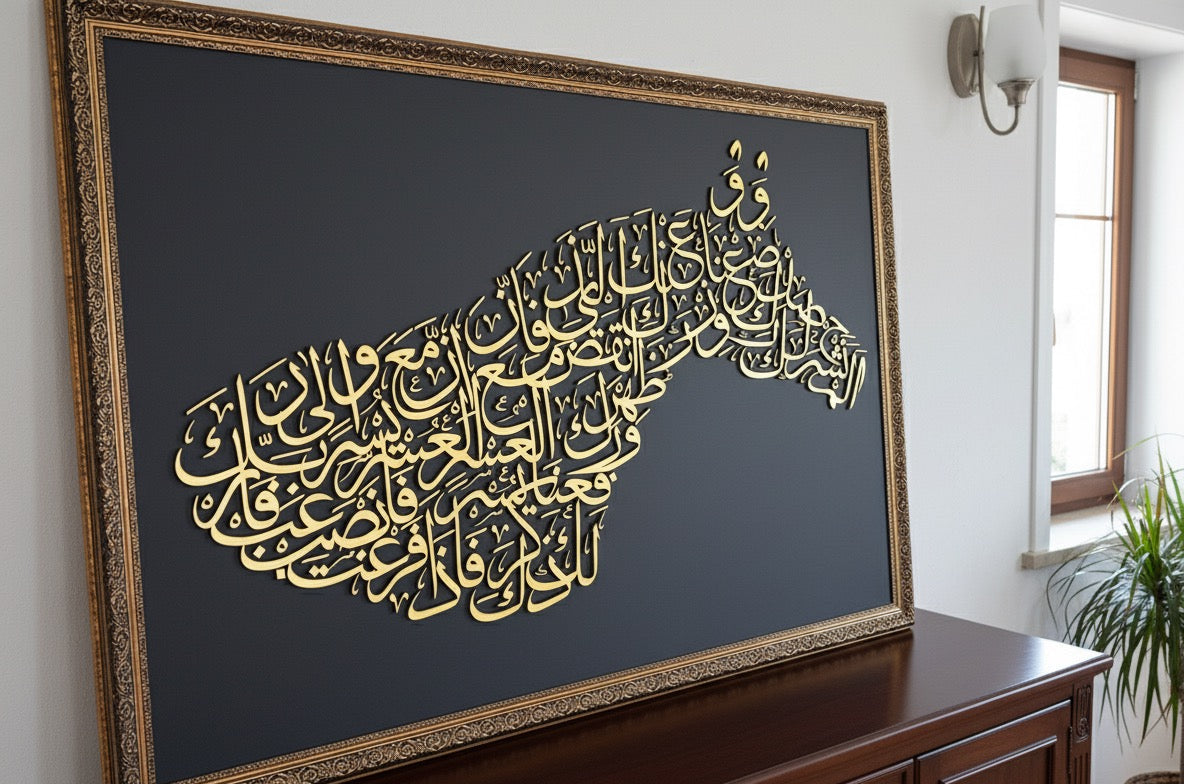 ألم نشرح لك صدرك
ووضعنا عنك وزرك
الذي أنقض ظهرك
ورفعنا لك ذكرك
فإن مع العسر يسرا
إن مع العسر يسرا
فإذا فرغت فانصب
وإلى ربك فارغب